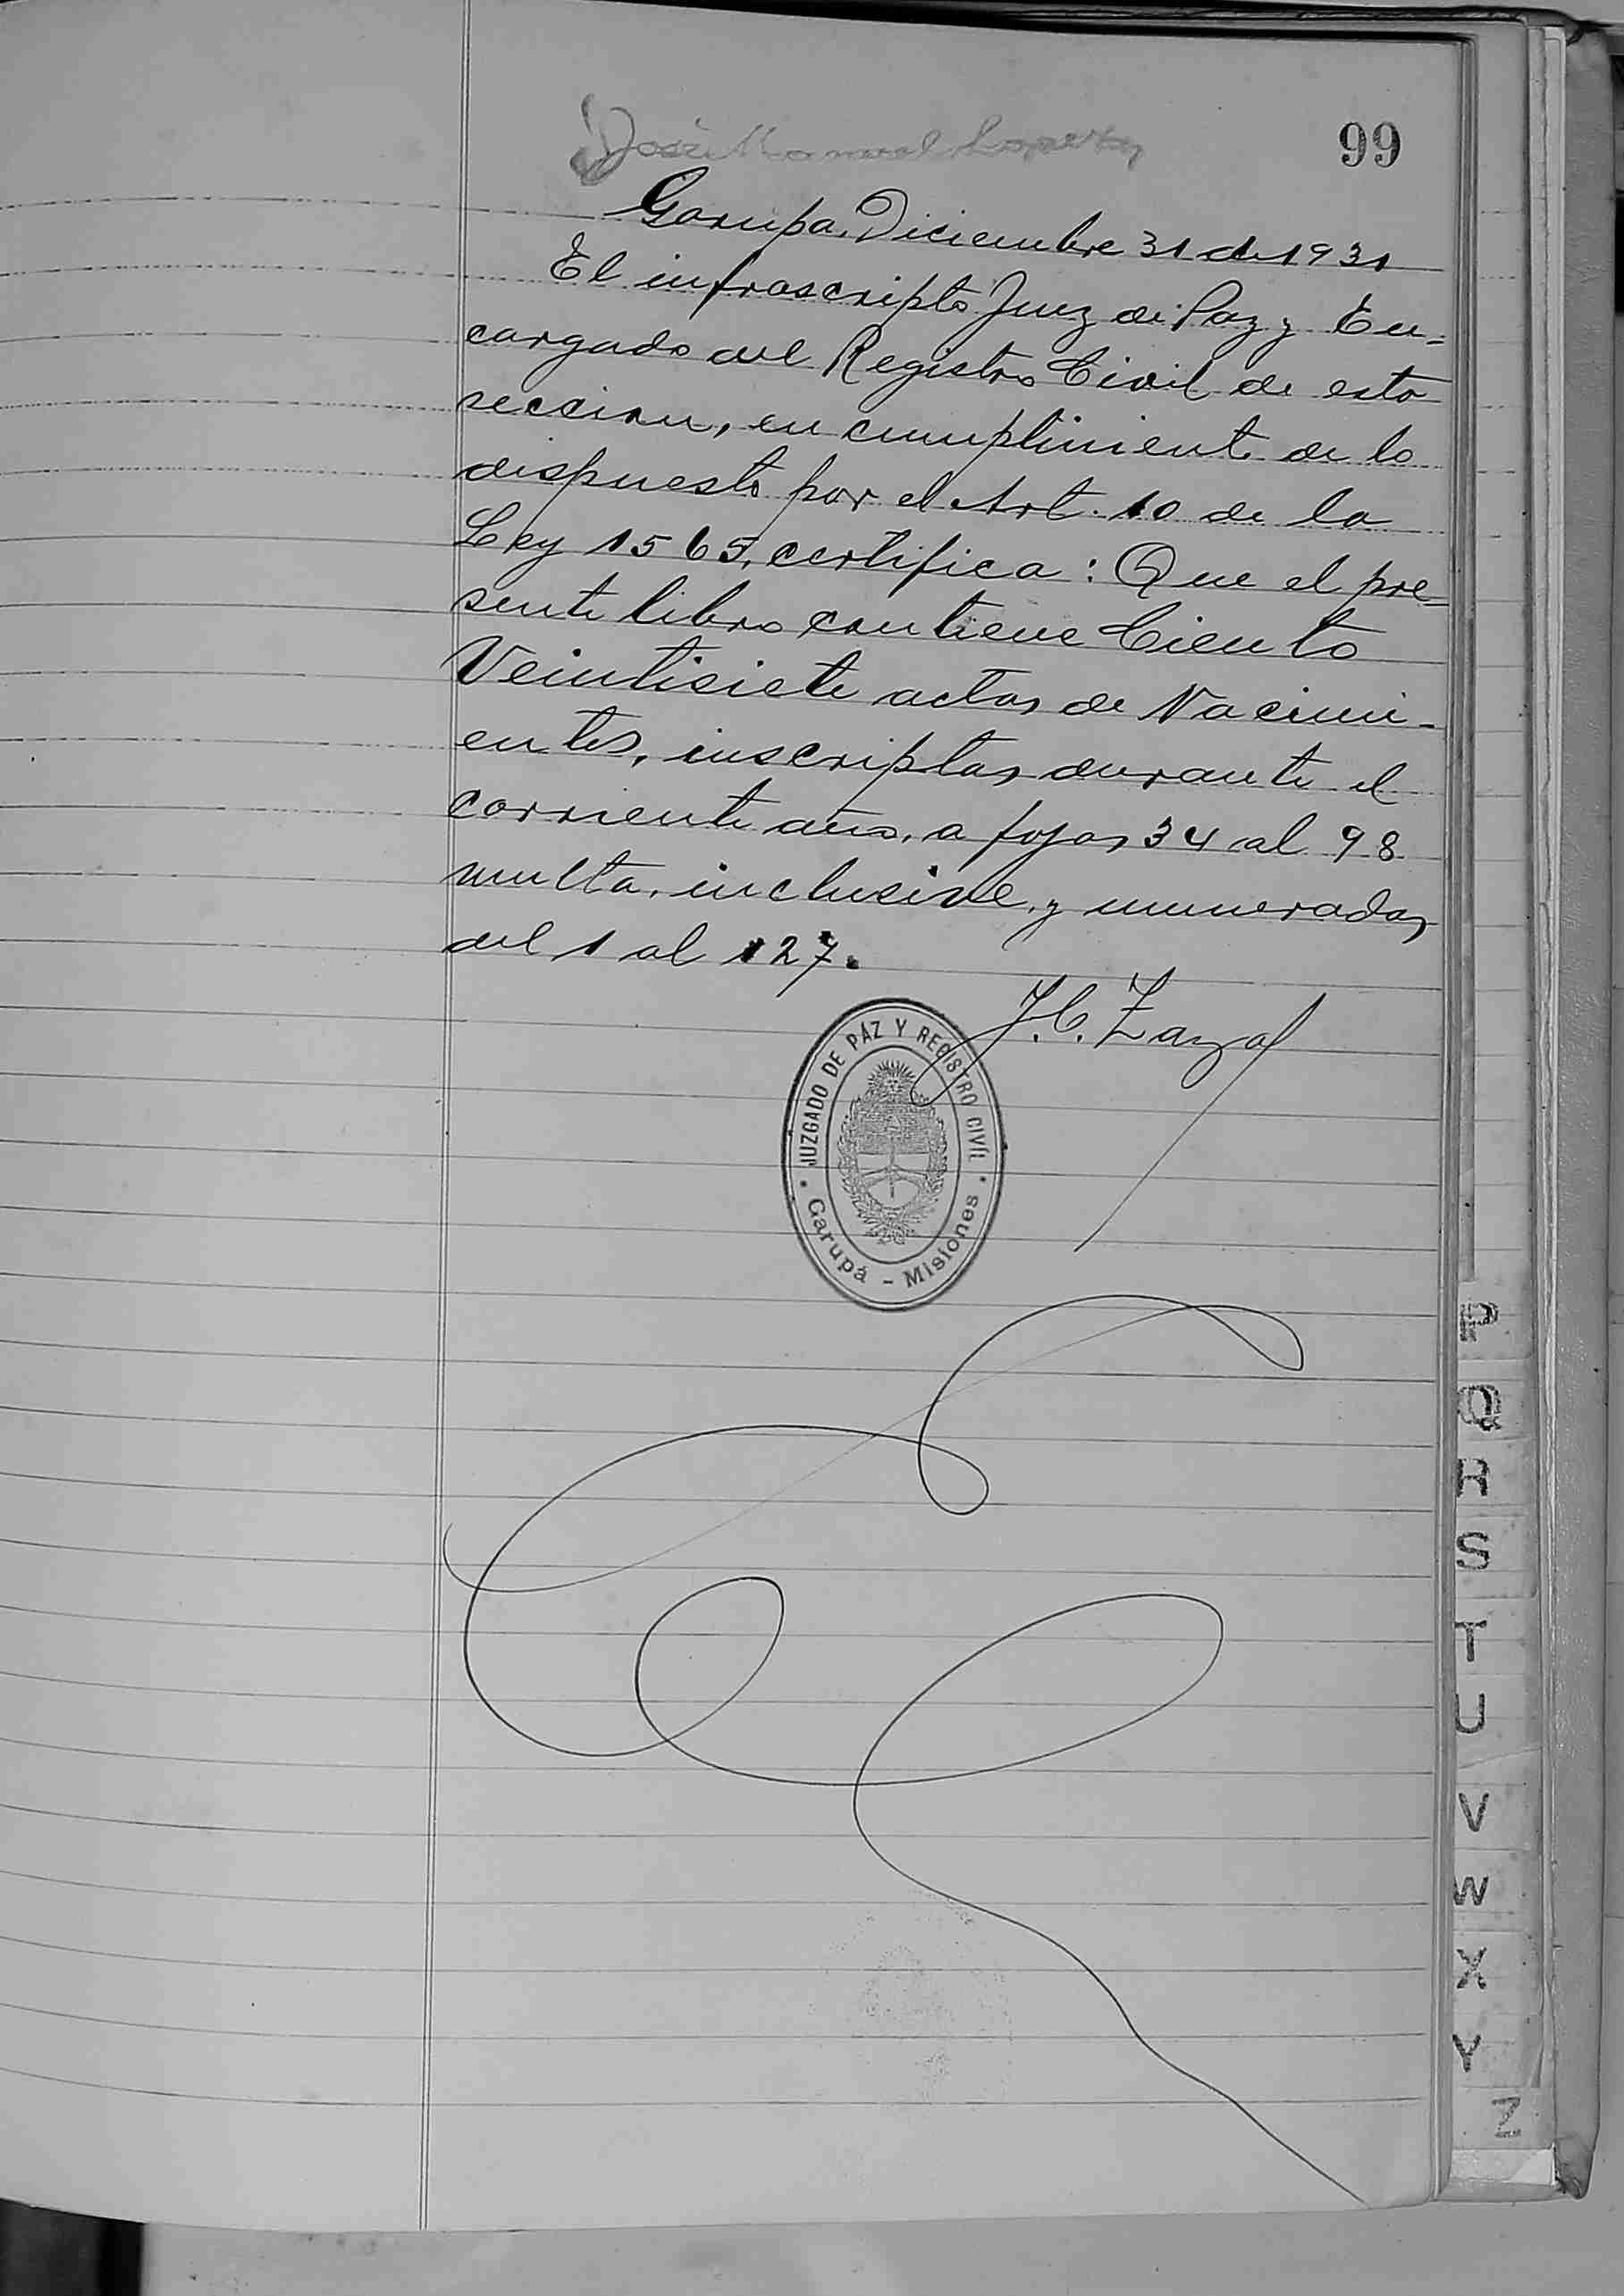 99
José Manuel
Garupa, Diciembre 31 de 1931
El infrascripto Juez de Paz y En=
cargado del Registro Civil de esta
seccion, en cumplimiento de lo
dispuesto por el Art. 10 de la
Ley 1565, certifica: Que el pre-
sente libro contiene Ciento
Veintisiete actas de Nacimi-
entos, inscriptas durante el
corriente año, a fojas 34 al 98
vuelta, inclusive, y numeradas
del 1 al 127.
J. C.
JUZGADO DE PÁZ Y REGISTRO CIVÍL
Garupá - Misiones
P
Q
R
S
T
U
V
W
X
Y
Z